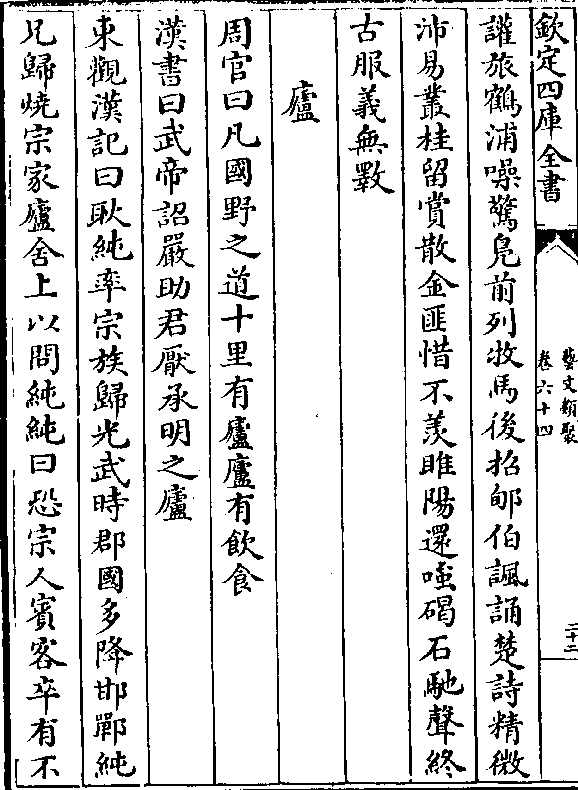 欽定四庫全書
藝文類聚
卷六十四
二十二
讙旅鶴浦噪驚鳧前列攽馬後招郇伯諷誦楚詩精微
沛易叢桂留賞散金匪惜不羨睢陽還嗤碣石馳聲終
古服義無斁
廬
周官曰凡國野之道十里有廬廬有飲食
漢書曰武帝詔嚴助君厭承明之廬
東觀漢記曰耿純率宗族歸光武時郡國多降邯鄲純
兄歸燒宗家廬舍上以問純純曰恐宗人賓客卒有不